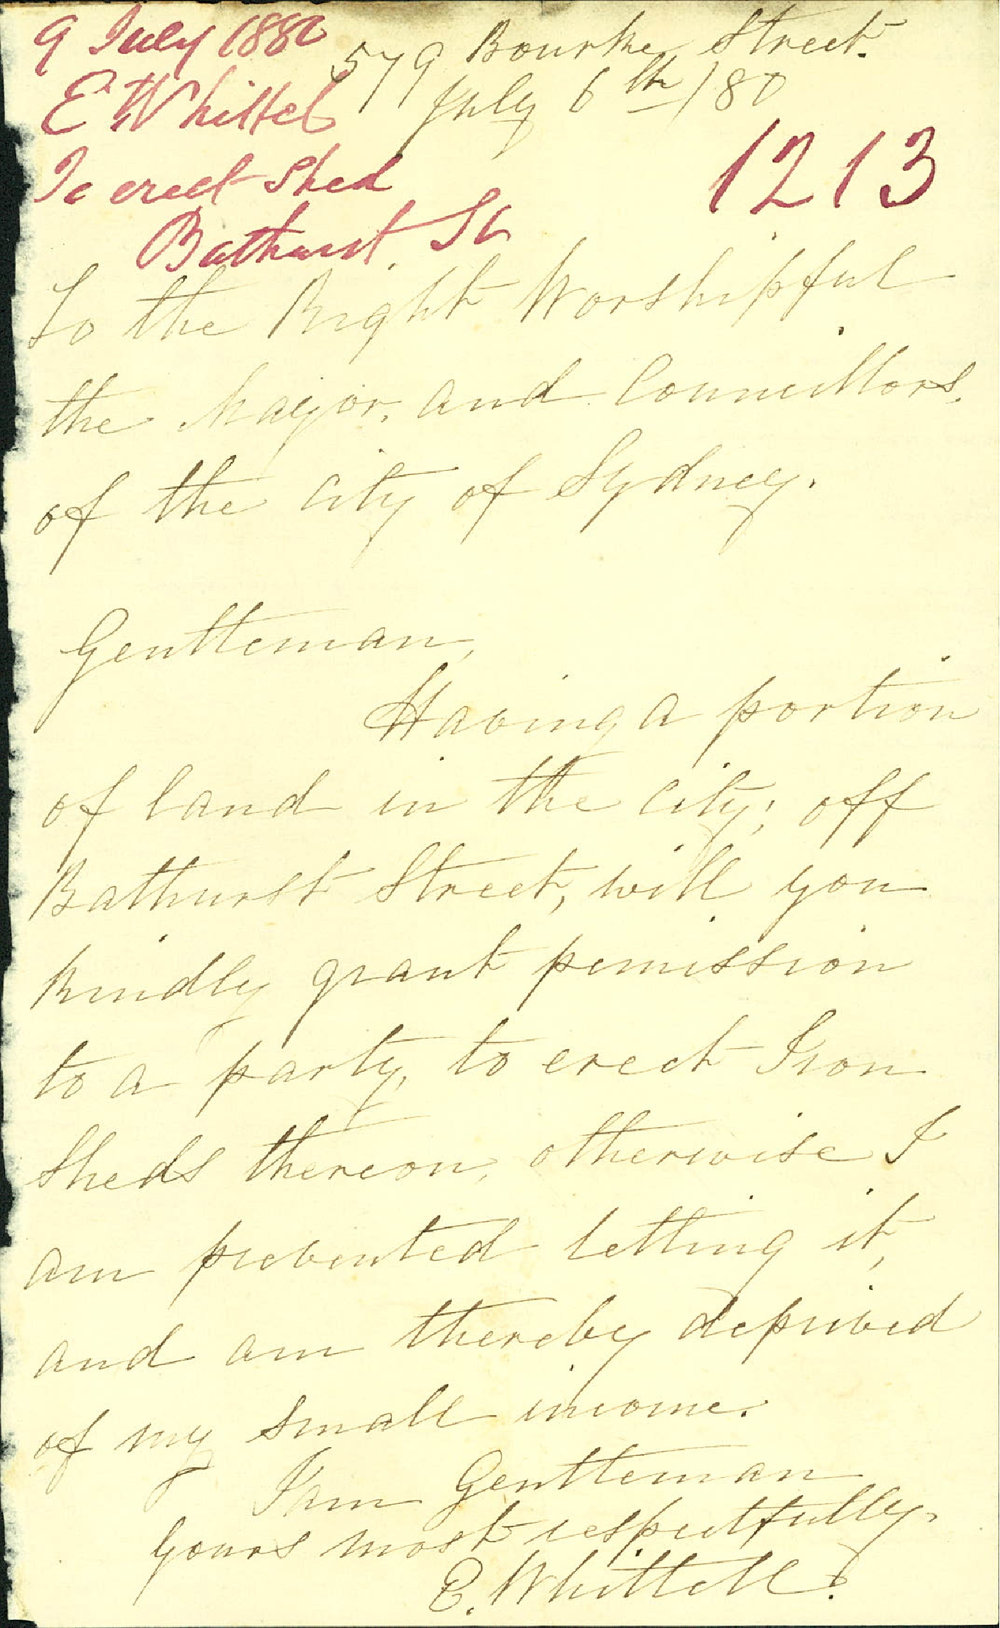 9 July 1880
E Whittel
To erect Shed
Bathurst St
579 Bourke Street.
July 6th /80
1213
To the Right Worshipful
the Mayor, and Councillors,
of the City of Sydney.
Gentleman,
Having a portion
of land in the City; off
Bathurst Street, will you
kindly grant pemission
to a party, to erect Iron
Sheds thereon, otherwise I
am prevented letting it,
and am thereby deprived
of my small income.
I am Gentleman
Yours most respectfully.
E. Whittell.